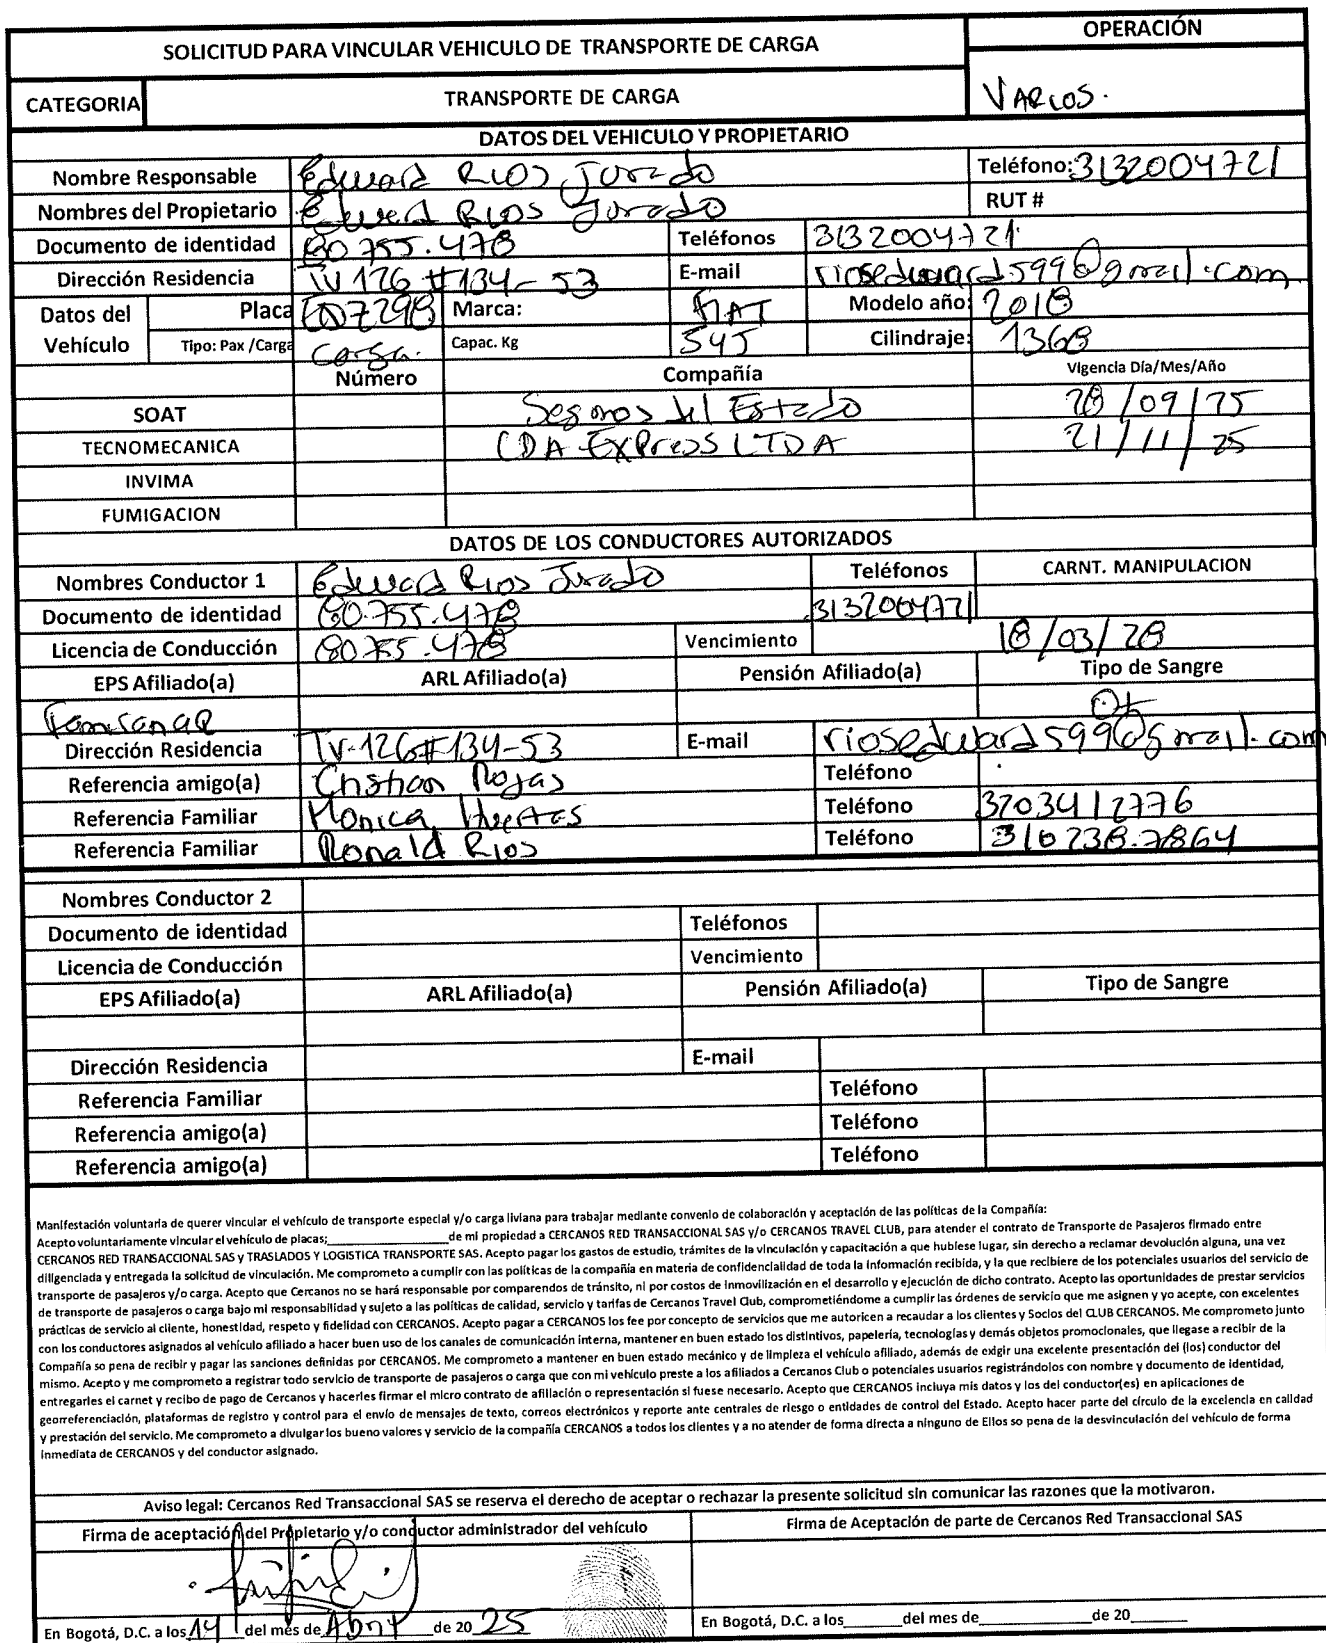 SOLICITUD PARA VINCULAR VEHICULO DE TRANSPORTE DE CARGA
OPERACIÓN
CATEGORIA
TRANSPORTE DE CARGA
VARIOS.
DATOS DEL VEHICULO Y PROPIETARIO
Nombre Responsable Edward Rios Jurado Teléfono: 3132004721
Nombres del Propietario Edward Rios Jurado RUT #
Documento de identidad 80.755.478 Teléfonos 3132004721
Dirección Residencia TV 126 #134-53 E-mail riosedward599@gmail.com
Datos del Vehículo Placa Marca: FIAT Modelo año: 2018
Tipo: Pax /Carga Carga. Capac. Kg 545 Cilindraje: 1368
Número Compañía Vigencia Día/Mes/Año
SOAT Seguros del Estado 28/09/25
TECNOMECANICA CDA EXPress LTDA 21/11/25
INVIMA
FUMIGACION
DATOS DE LOS CONDUCTORES AUTORIZADOS
Nombres Conductor 1 Edward Rios Jurado Teléfonos CARNT. MANIPULACION
Documento de identidad 80.755.478 3132004721
Licencia de Conducción 80.755.478 Vencimiento 18/03/28
EPS Afiliado(a) ARL Afiliado(a) Pensión Afiliado(a) Tipo de Sangre
Famisanar O+
Dirección Residencia Tv-126#134-53 E-mail riosedward599@gmail.com
Referencia amigo(a) Cristian Rojas Teléfono
Referencia Familiar Monica Huertas Teléfono 3203412776
Referencia Familiar Ronald Rios Teléfono 310238.7864
Nombres Conductor 2
Documento de identidad Teléfonos
Licencia de Conducción Vencimiento
EPS Afiliado(a) ARL Afiliado(a) Pensión Afiliado(a) Tipo de Sangre
Dirección Residencia E-mail
Referencia Familiar Teléfono
Referencia amigo(a) Teléfono
Referencia amigo(a) Teléfono
Manifestación voluntaria de querer vincular el vehículo de transporte especial y/o carga liviana para trabajar mediante convenio de colaboración y aceptación de las políticas de la Compañía:
Acepto voluntariamente vincular el vehículo de placas;____________________de mi propiedad a CERCANOS RED TRANSACCIONAL SAS y/o CERCANOS TRAVEL CLUB, para atender el contrato de Transporte de Pasajeros firmado entre
CERCANOS RED TRANSACCIONAL SAS y TRASLADOS Y LOGISTICA TRANSPORTE SAS. Acepto pagar los gastos de estudio, trámites de la vinculación y capacitación a que hubiese lugar, sin derecho a reclamar devolución alguna, una vez
diligenciada y entregada la solicitud de vinculación. Me comprometo a cumplir con las políticas de la compañía en materia de confidencialidad de toda la información recibida, y la que recibiere de los potenciales usuarios del servicio de
transporte de pasajeros y/o carga. Acepto que Cercanos no se hará responsable por comparendos de tránsito, ni por costos de inmovilización en el desarrollo y ejecución de dicho contrato. Acepto las oportunidades de prestar servicios
de transporte de pasajeros o carga bajo mi responsabilidad y sujeto a las políticas de calidad, servicio y tarifas de Cercanos Travel Club, comprometiéndome a cumplir las órdenes de servicio que me asignen y yo acepte, con excelentes
prácticas de servicio al cliente, honestidad, respeto y fidelidad con CERCANOS. Acepto pagar a CERCANOS los fee por concepto de servicios que me autoricen a recaudar a los clientes y Socios del CLUB CERCANOS. Me comprometo junto
con los conductores asignados al vehículo afiliado a hacer buen uso de los canales de comunicación interna, mantener en buen estado los distintivos, papelería, tecnologías y demás objetos promocionales, que llegase a recibir de la
Compañía so pena de recibir y pagar las sanciones definidas por CERCANOS. Me comprometo a mantener en buen estado mecánico y de limpieza el vehículo afiliado, además de exigir una excelente presentación del (los) conductor del
mismo. Acepto y me comprometo a registrar todo servicio de transporte de pasajeros o carga que con mi vehículo preste a los afiliados a Cercanos Club o potenciales usuarios registrándolos con nombre y documento de identidad,
entregarles el carnet y recibo de pago de Cercanos y hacerles firmar el micro contrato de afiliación o representación si fuese necesario. Acepto que CERCANOS incluya mis datos y los del conductor(es) en aplicaciones de
georreferenciación, plataformas de registro y control para el envío de mensajes de texto, correos electrónicos y reporte ante centrales de riesgo o entidades de control del Estado. Acepto hacer parte del círculo de la excelencia en calidad
y prestación del servicio. Me comprometo a divulgar los bueno valores y servicio de la compañía CERCANOS a todos los clientes y a no atender de forma directa a ninguno de Ellos so pena de la desvinculación del vehículo de forma
inmediata de CERCANOS y del conductor asignado.
Aviso legal: Cercanos Red Transaccional SAS se reserva el derecho de aceptar o rechazar la presente solicitud sin comunicar las razones que la motivaron.
Firma de aceptación del Propietario y/o conductor administrador del vehículo Firma de Aceptación de parte de Cercanos Red Transaccional SAS
En Bogotá, D.C. a los 14 del mes de Abril de 20 25 En Bogotá, D.C. a los_______del mes de_____________de 20______